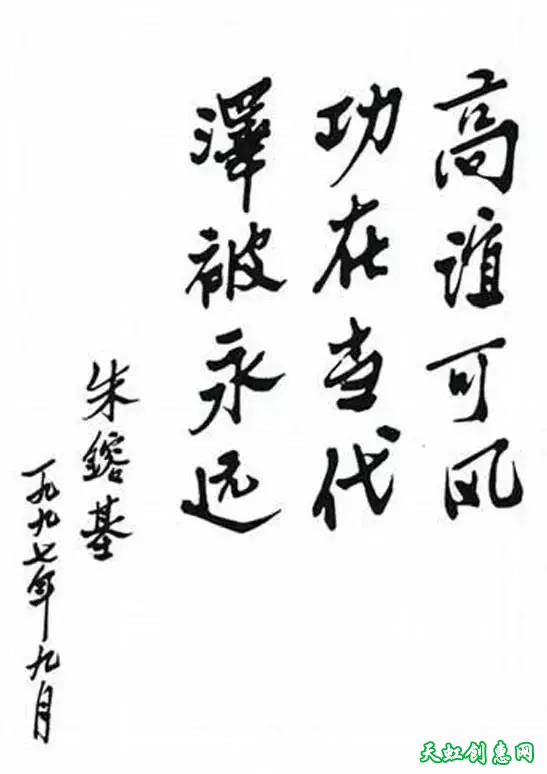 高谊可风
功在当代
澤被永远
朱鎔基
一九九七年九月
天虹创惠网